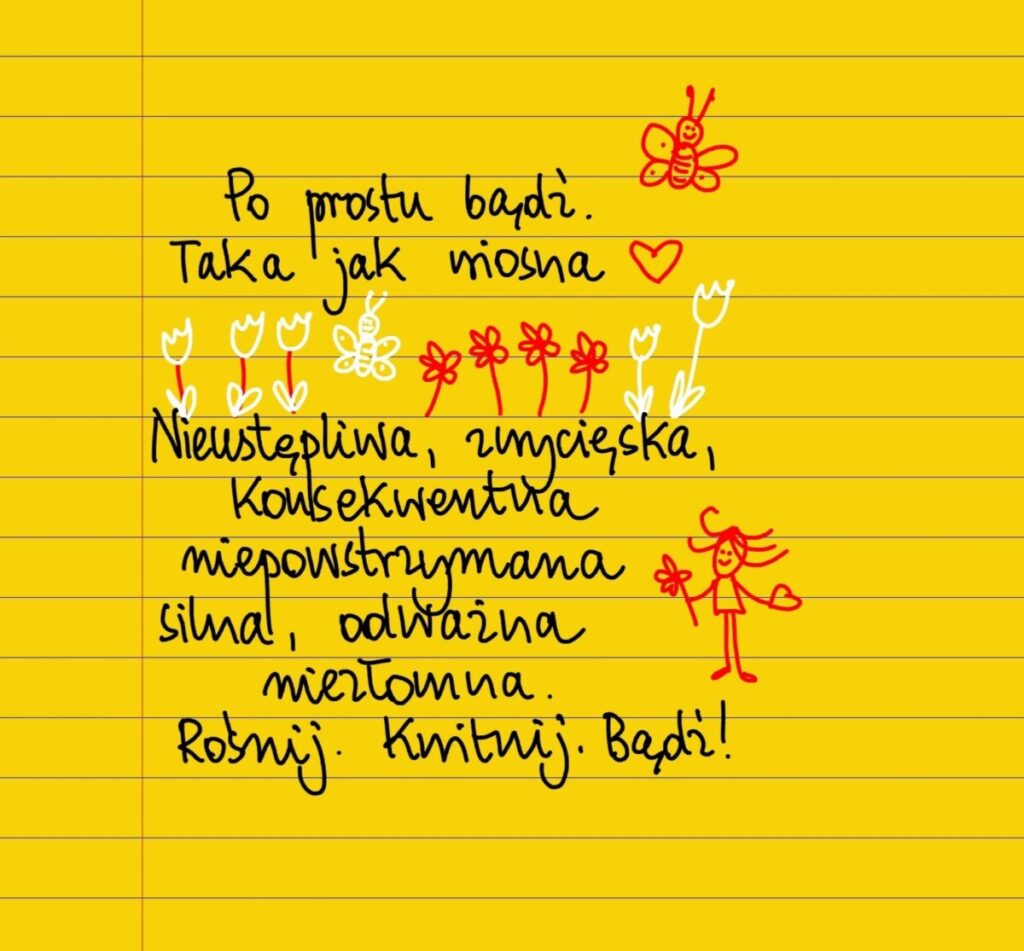 Po prostu bądź.
Taka jak wiosna
Nieustępliwa, zwycięska,
konsekwentna
niepowstrzymana
silna, odważna
niezłomna.
Rośnij. Kwitnij. Bądź!